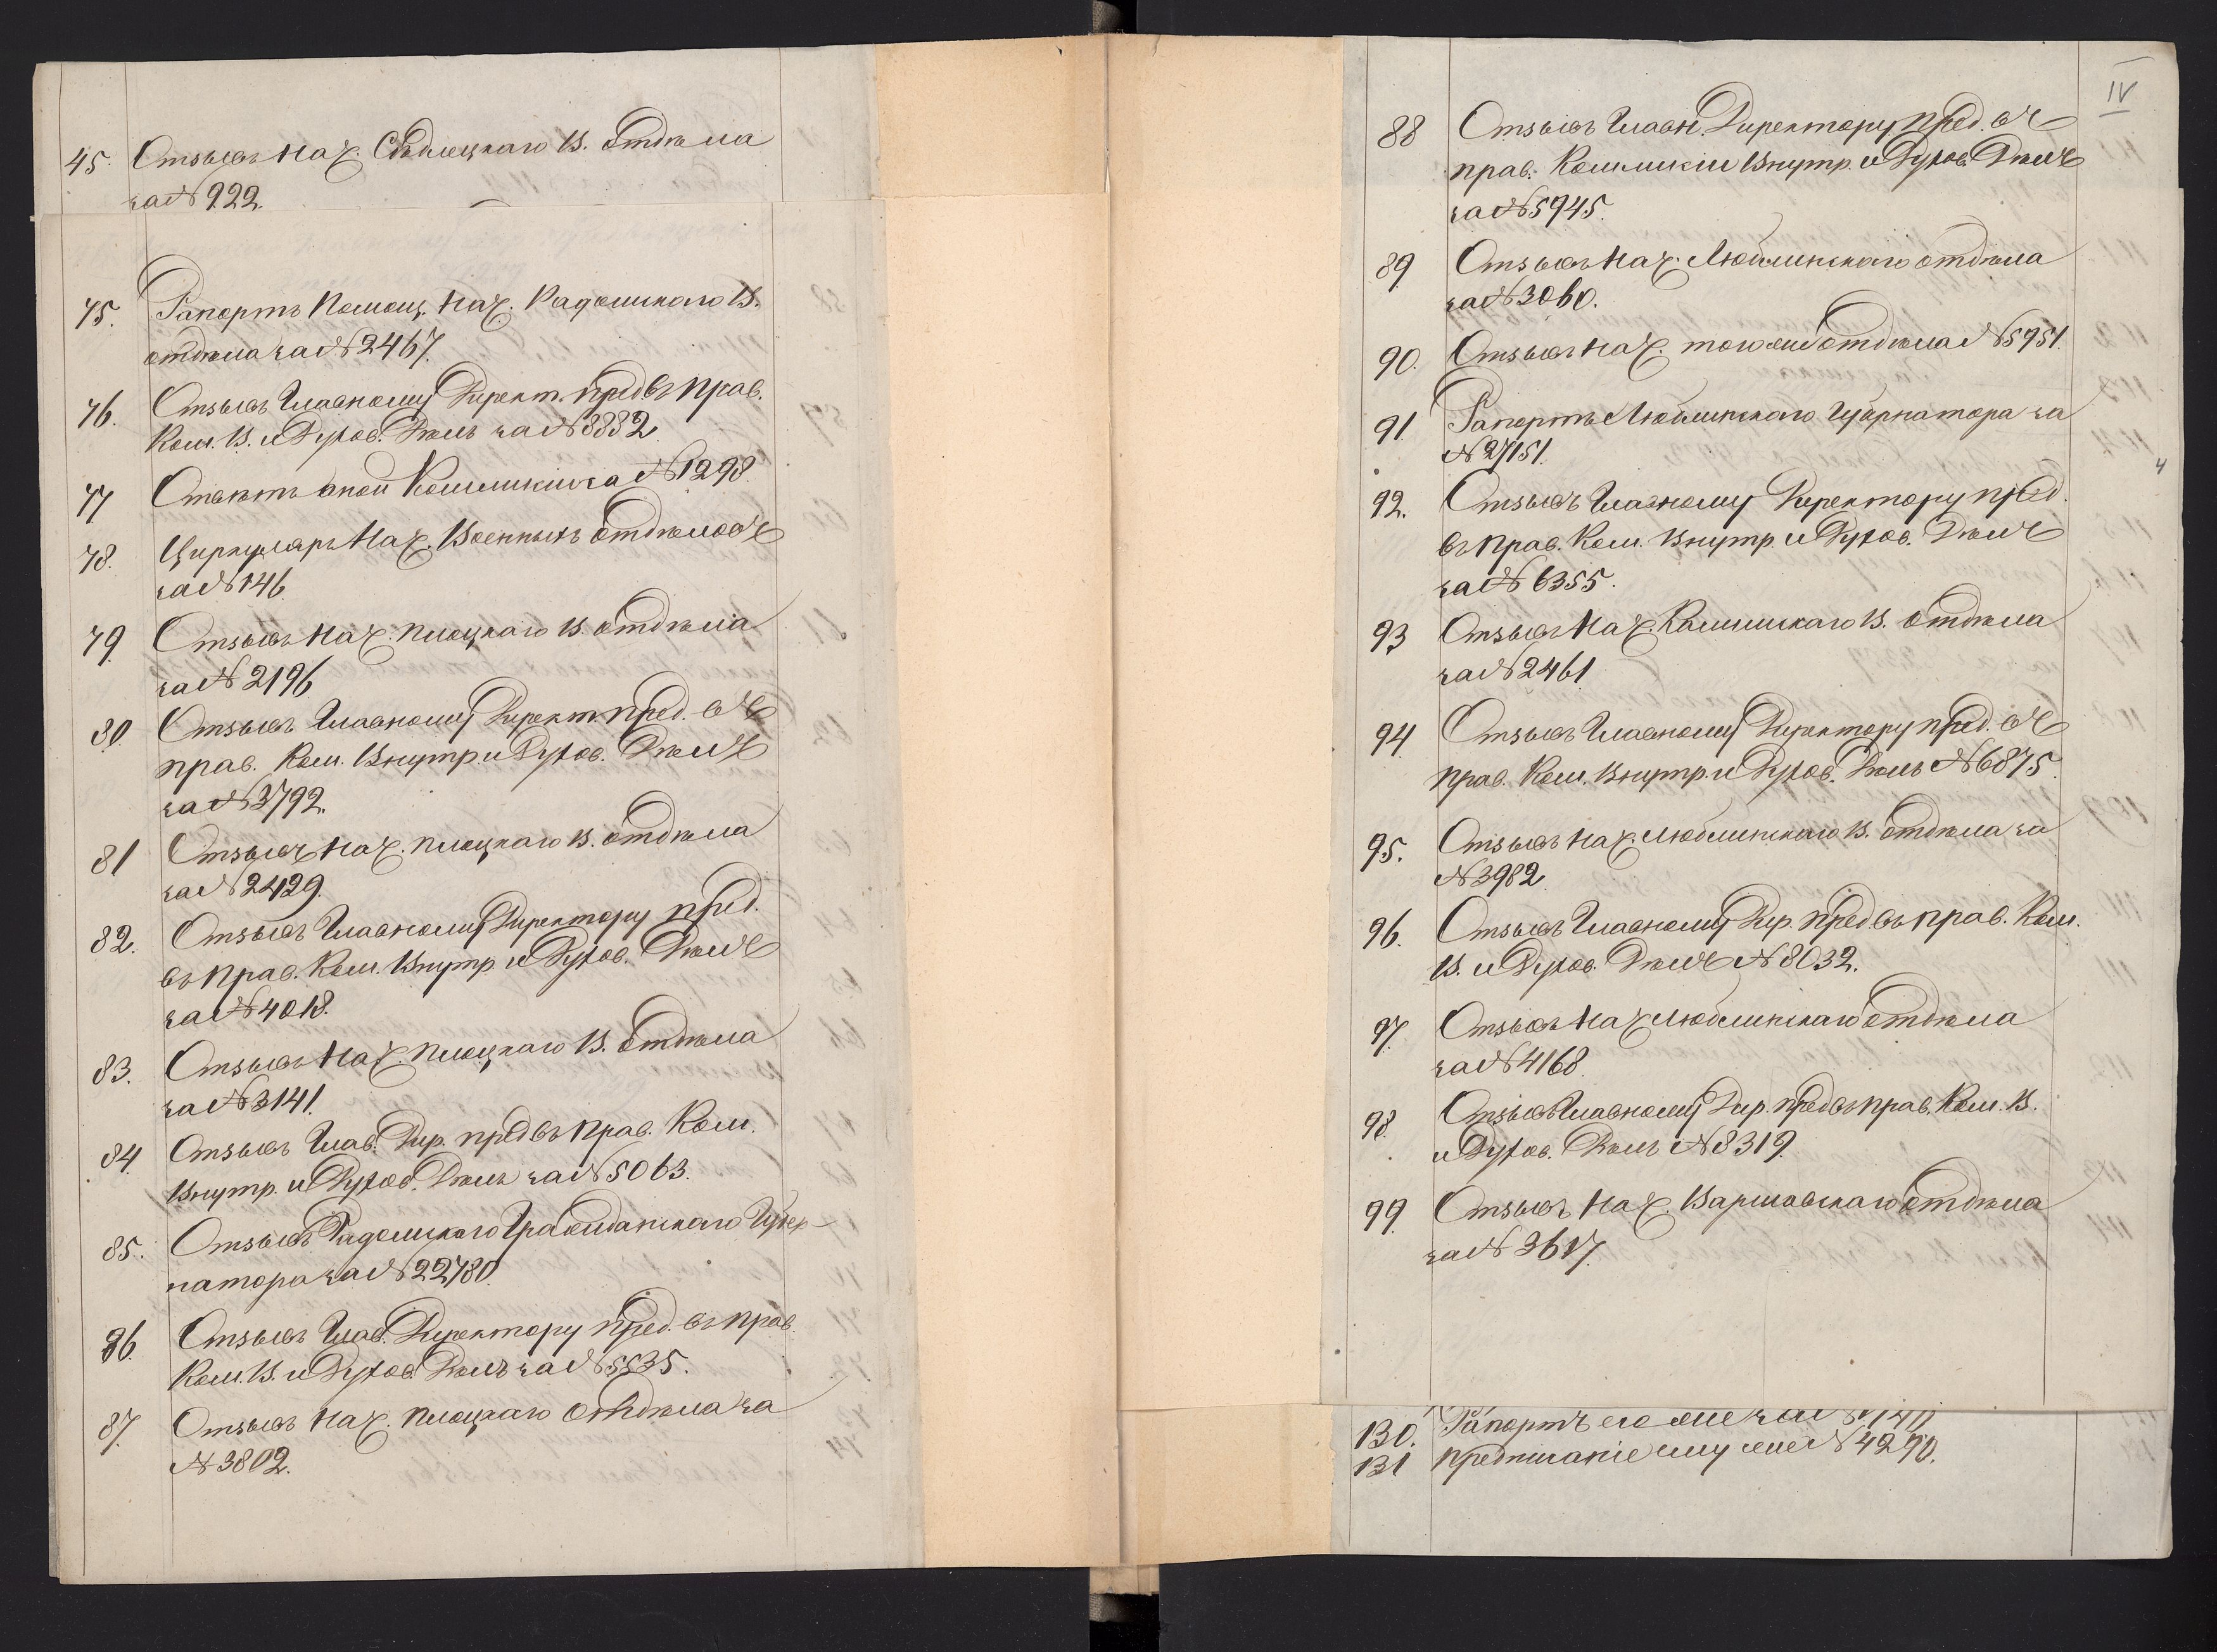 45. Отзывъ Нач. Сѣдлецкаго В. Отдѣла
за № 922.
75. Рапортъ Помощ. Нач. Радомскаго В.
отдѣла за № 2467.
76. Отзывъ Главному Директ. пред въ прав.
Ком. В. и Духов. Дѣлъ за № 3332
77 Отвѣтъ оной Коммисіи за № 1298.
78. Циркуляръ Нач. Военныхъ Отдѣловъ
за № 146
79. Отзывъ Нач. Плоцкаго В. отдѣла
за № 2196
80. Отзывъ Главному Директ. пред. въ
прав. Ком. Внутр. и Духов. Дѣлъ
за № 3792.
81 Отзывъ Нач. Плоцкаго В. отдѣла
за № 2429.
82. Отзывъ Главному Директору пред.
въ Прав. Ком. Внутр. и Духов. Дѣлъ
за № 4018.
83. Отзывъ Нач. Плоцкаго В. Отдѣла
за № 3141.
84 Отзывъ Глав. Дир. пред въ Прав. Ком.
Внутр. и Духов. Дѣлъ за № 5063.
85. Отзывъ Радомскаго Гражданскаго Губер-
натора за № 22780.
86. Отзывъ Глав. Директору пред. въ прав.
Ком. В. и Духов. Дѣлъ за № 5535.
87. Отзывъ Нач. Плоцкаго Отдѣла за
№ 3802.
IV
88 Отзывъ Главн. Директору пред. въ
прав. Коммисіи Внутр. и Духов. Дѣлъ
за № 5945.
89 Отзывъ Нач. Люблинскаго отдѣла
за № 3060.
90. Отзывъ Нач. того же отдѣла № 5951.
91. Рапортъ Люблинскаго Губернатора за
№ 27151.
4
92. Отзывъ Главному Директору пред.
въ Прав. Ком. Внутр. и Духов. Дѣлъ
за № 6355.
93 Отзывъ Нач. Калишскаго В. отдѣла
за № 2461
94 Отзывъ Главному Директору пред. въ
прав. Ком. Внутр. и Духов. Дѣлъ № 6875.
95. Отзывъ Нач. Люблинскаго В. отдѣла за
№ 3982.
96. Отзывъ Главному Дир. пред. въ прав. Ком.
В. и Духов. Дѣлъ № 8032.
97. Отзывъ Нач. Люблинскаго отдѣла
за № 4168.
98. Отзывъ Главному Дир. пред въ прав. Ком. В.
и Духов. Дѣлъ № 8319.
99. Отзывъ Нач. Варшавскаго отдѣла
за № 3617.
130. Рапортъ его же за №
131 Предписаніе ему же № 4290.